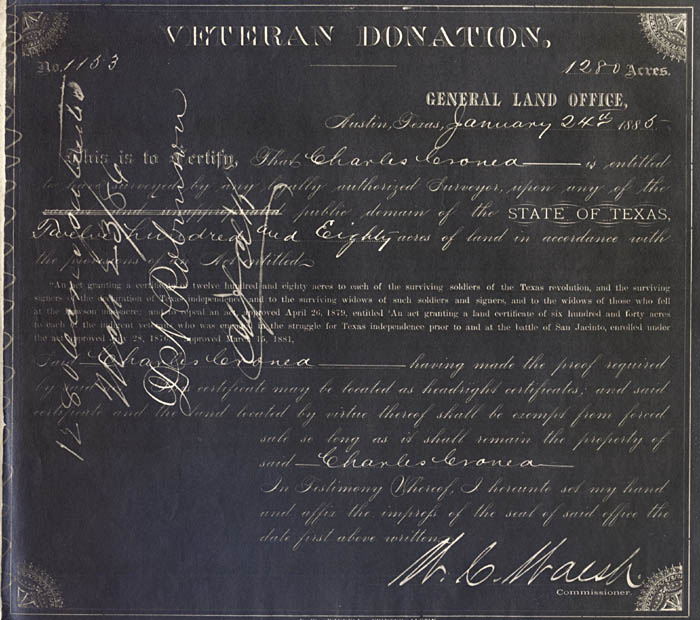 VETERAN DONATION.
No. 1153
1280 Acres.
GENERAL LAND OFFICE,
Austin, Texas, January 24th 1885
This is to Certify, That Charles Cronea is entitled
to have surveyed by any legally authorized Surveyor, upon any of the
unappropriated public domain of the STATE OF TEXAS,
Twelve hundred and Eighty acres of land in accordance with
the provisions of an Act entitled
"An act granting a certificate twelve hundred and eighty acres to each of the surviving soldiers of the Texas revolution, and the surviving
signers of the declaration of Texas independence, and to the surviving widows of such soldiers and signers, and to the widows of those who fell
at the repeal an act approved April 26, 1879, entitled 'An act granting a land certificate of six hundred and forty acres
to each of the indigent veterans who was engaged in the struggle for Texas independence prior to and at the battle of San Jacinto, enrolled under
the act approved 28, 1876,' approved March 15, 1881,
Charles Cronea having made the proof required
by said certificate may be located as headright certificates; and said
certificate and the land located by virtue thereof shall be exempt from forced
sale so long as it shall remain the property of
said Charles Cronea
In Testimony Whereof, I hereunto set my hand
and affix the impress of the seal of said office the
date first above written.
W. C. Walsh
Commissioner.
128
D. W. Robinson